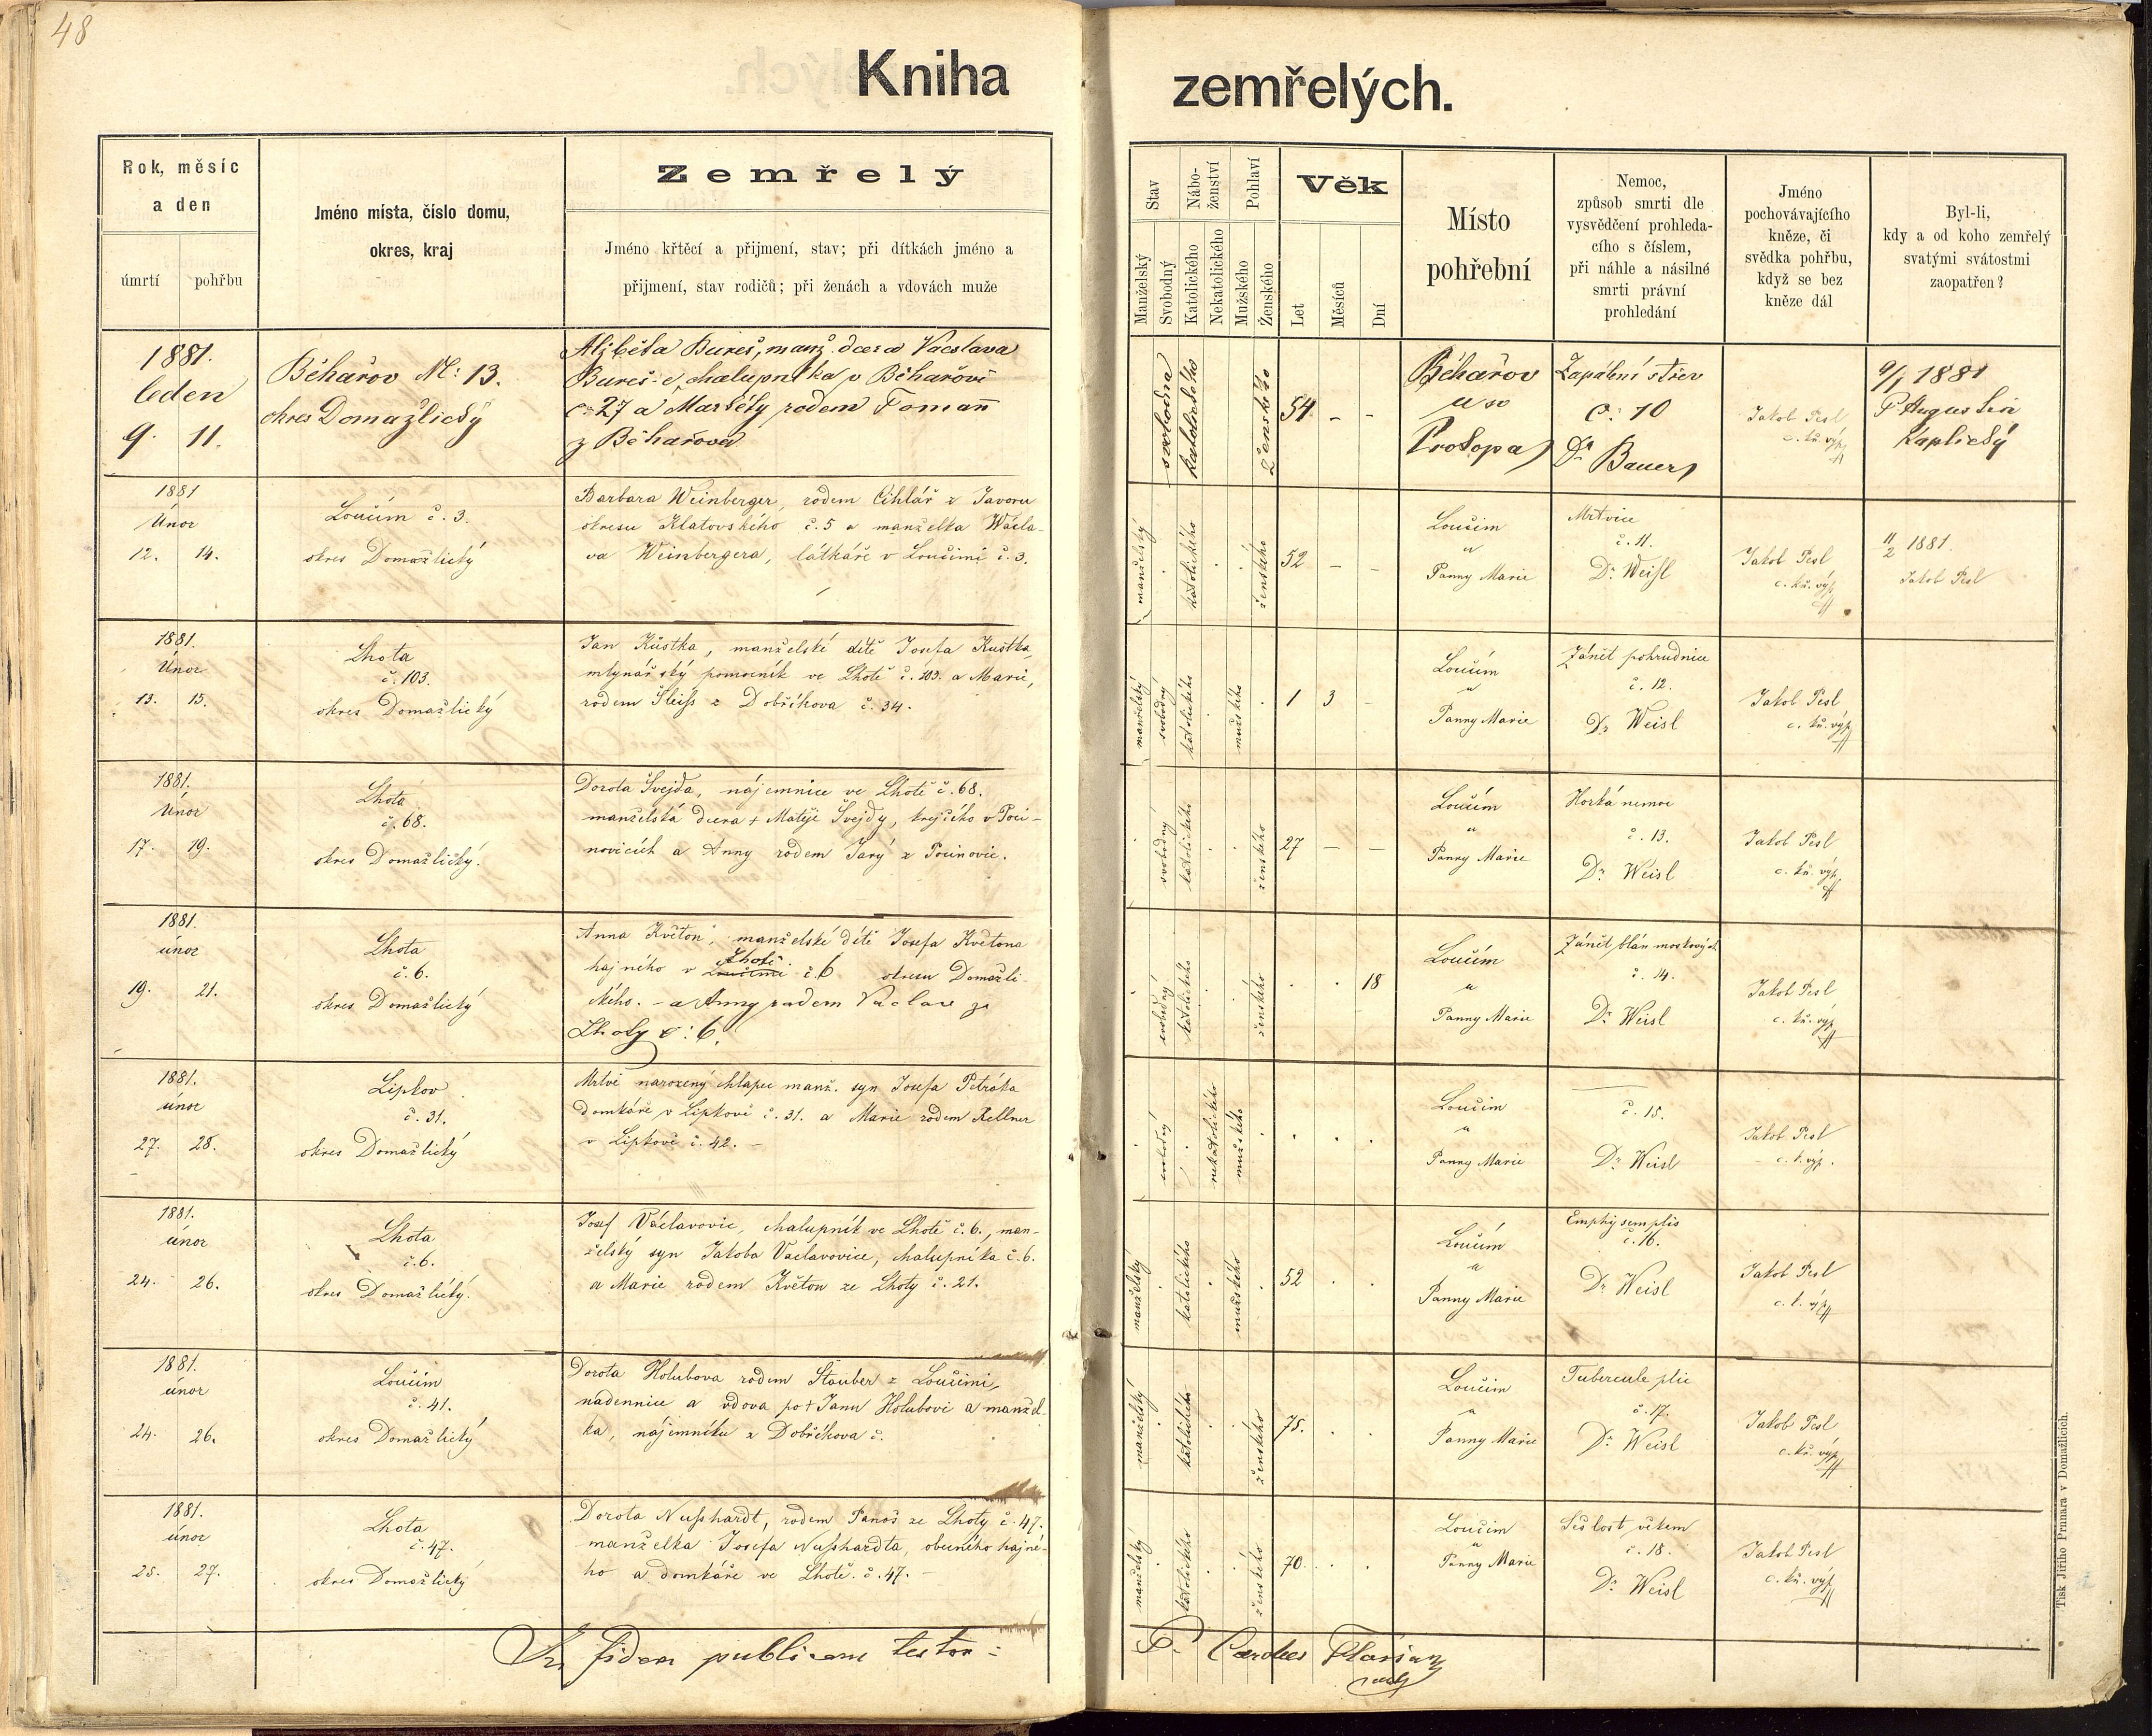 48
Kniha zemřelých.
Rok, měsíc
a den
úmrtí pohřbu
Jméno místa, číslo domu,
okres, kraj
Zemřelý
Jméno křtěcí a přijmení, stav; při dítkách jméno a
přijmení, stav rodičů; při ženách a vdovách muže
Stav
Manželský
Svobodný
Nábo-
ženství
Katolického
Nekatolického
Pohlaví
Mužského
Ženského
Věk
Let
Měsíců
Dní
Místo
pohřební
Nemoc,
způsob smrti dle
vysvědčení prohleda-
cího s číslem,
při náhle a násilné
smrti právní
prohledání
Jméno
pochovávajícího
kněze, či
svědka pohřbu,
když se bez
kněze dál
Byl-li,
kdy a od koho zemřelý
svatými svátostmi
zaopatřen?
1881.
leden
9. 11.
Běhařov N: 13.
okres Domažlický
Alžběta Bureš, manž. dcera Václava
Bureš-e, chalupníka v Běhařově
č. 27 a Markéty rodem Tomann
z Běhařova
svobodná
katolického
ženského
54 - -
Běhařov
u sv
Prokopa
Zapálení střev
č: 10
Dr Bauer
Jakob Pesl
c. kř. výp
9/1 1881
P Augustin
Kaplický
1881
Únor
12. 14.
Loučim č. 3.
okres Domažlický
Barbara Weinberger, rodem Cihlář z Javoru
okresu Klatovského č. 5 a manželka Wácla-
va Weinbergera, látkáře v Loučimi č. 3.
manželský
katolického
ženského
52 - -
Loučim
u
Panny Marie
Mrtvice
č. 11.
Dr. Weisl
Jakob Pesl
c. kř. výp
11/2 1881.
Jakob Pesl
1881.
Únor
13. 15.
Lhota
č. 103.
okres Domažlický
Jan Kůstka, manželské dítě Josefa Kustka,
mlynářský pomocník ve Lhotě č. 103. a Marie,
rodem Šleiss z Dobříkova č. 34.
manželský
svobodný
katolického
mužského
1 3 -
Loučím
u
Panny Marie
Zánět pohrudnice
č. 12.
Dr Weisl
Jakob Pesl
c. kř. výp
1881.
Únor
17. 19.
Lhota
č. 68.
okres Domažlický.
Dorota Švejda, nájemnice ve Lhotě č. 68.
manželská dcera + Matěje Švejdy, krejčího v Poci-
novicích a Anny rodem Jarý z Pocinovic.
svobodný
katolického
ženského
27 - -
Loučím
u
Panny Marie
Horká nemoc
č. 13.
Dr Weisl
Jakob Pesl
c. kř. výp
1881.
únor
19. 21.
Lhota
č. 6.
okres Domažlický
Anna Květoň, manželské dítě Josefa Květona
Lhotě
hajného v Loučimi č. 6 okresu Domažli-
ckého. - a Anny rodem Václav ze
Lhoty č: 6.
svobodný
katolického
ženského
18
Loučím
u
Panny Marie
Zánět blán moskových
č. 14.
Dr Weisl
Jakob Pesl
c. kř. výp
1881.
únor
27. 28.
Lipkov
č. 31.
okres Domažlický
Mrtvě narozený chlapec manž. syn Josefa Petráka
domkáře v Lipkově č. 31. a Marie rodem Kellner
v Lipkově č. 42. -
svobodný
nekatolického
mužského
Loučim
u
Panny Marie
č. 15.
Dr Weisl
Jakob Pesl
c. k. výp.
1881.
únor
24. 26.
Lhota
č. 6.
okres Domažlický.
Josef Václavovic, chalupník ve Lhotě č. 6., man-
želský syn Jakoba Vaclavovice, chalupníka č. 6.
a Marie rodem Květon ze Lhoty č. 21.
manželský
katolického
mužského
52
Loučím
u
Panny Marie
Emphysem plic
č. 16.
Dr Weisl
Jakob Pesl
c. k. výp
1881.
únor
24. 26.
Loučim
č. 41.
okres Domažlický
Dorota Holubova rodem Stauber z Loučimi,
nadennice a vdova po + Janu Holubovi a manžel-
ka, nájemníku z Dobříkova č.
manželský
katolického
ženského
75.
Loučim
u
Panny Marie
Tubercule plic
č. 17.
Dr Weisl
Jakob Pesl
c. kř. výp
1881.
únor
25. 27.
Lhota
č. 47.
okres Domažlický
Dorota Nusshardt, rodem Panoš ze Lhoty č. 47.
manželka Josefa Nusshardta, obecného hajné-
ho a domkáře ve Lhotě č. 47. -
manželský
katolického
ženského
70.
Loučim
u
Panny Marie
Sešlost věkem
č. 18.
Dr Weisl
Jakob Pesl
c. kř. výp
In fidem publicam testor:
P. Carolus Florian
Tisk Jiřího Prunara v Domažlicích.